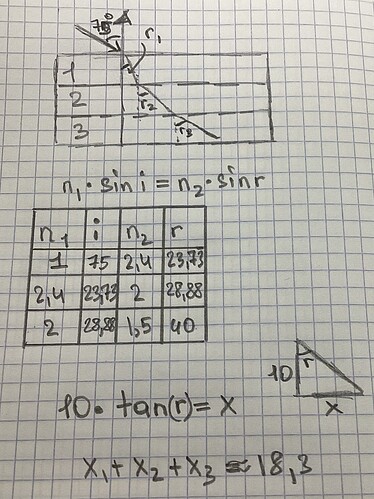 75° r₁
1
2 r₂
3 r₃
n₁ · sin i = n₂ · sin r
n₁ i n₂ r
1 75 2,4 23,73
2,4 23,73 2 28,88
2 28,88 1,5 40
10 r
x
10 · tan(r) = x
x₁ + x₂ + x₃ ≈ 18,3